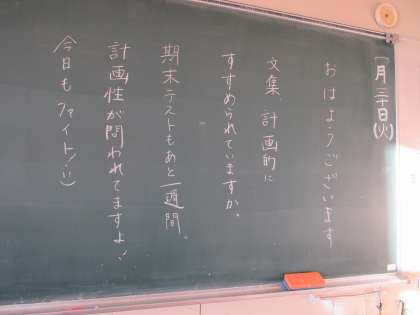 一月三十日(火)
おはようございます
文集 計画的に
すすめられていますか。
期末テストもあと一週間。
計画性が問われてますよ!
今日もファイト!!:)